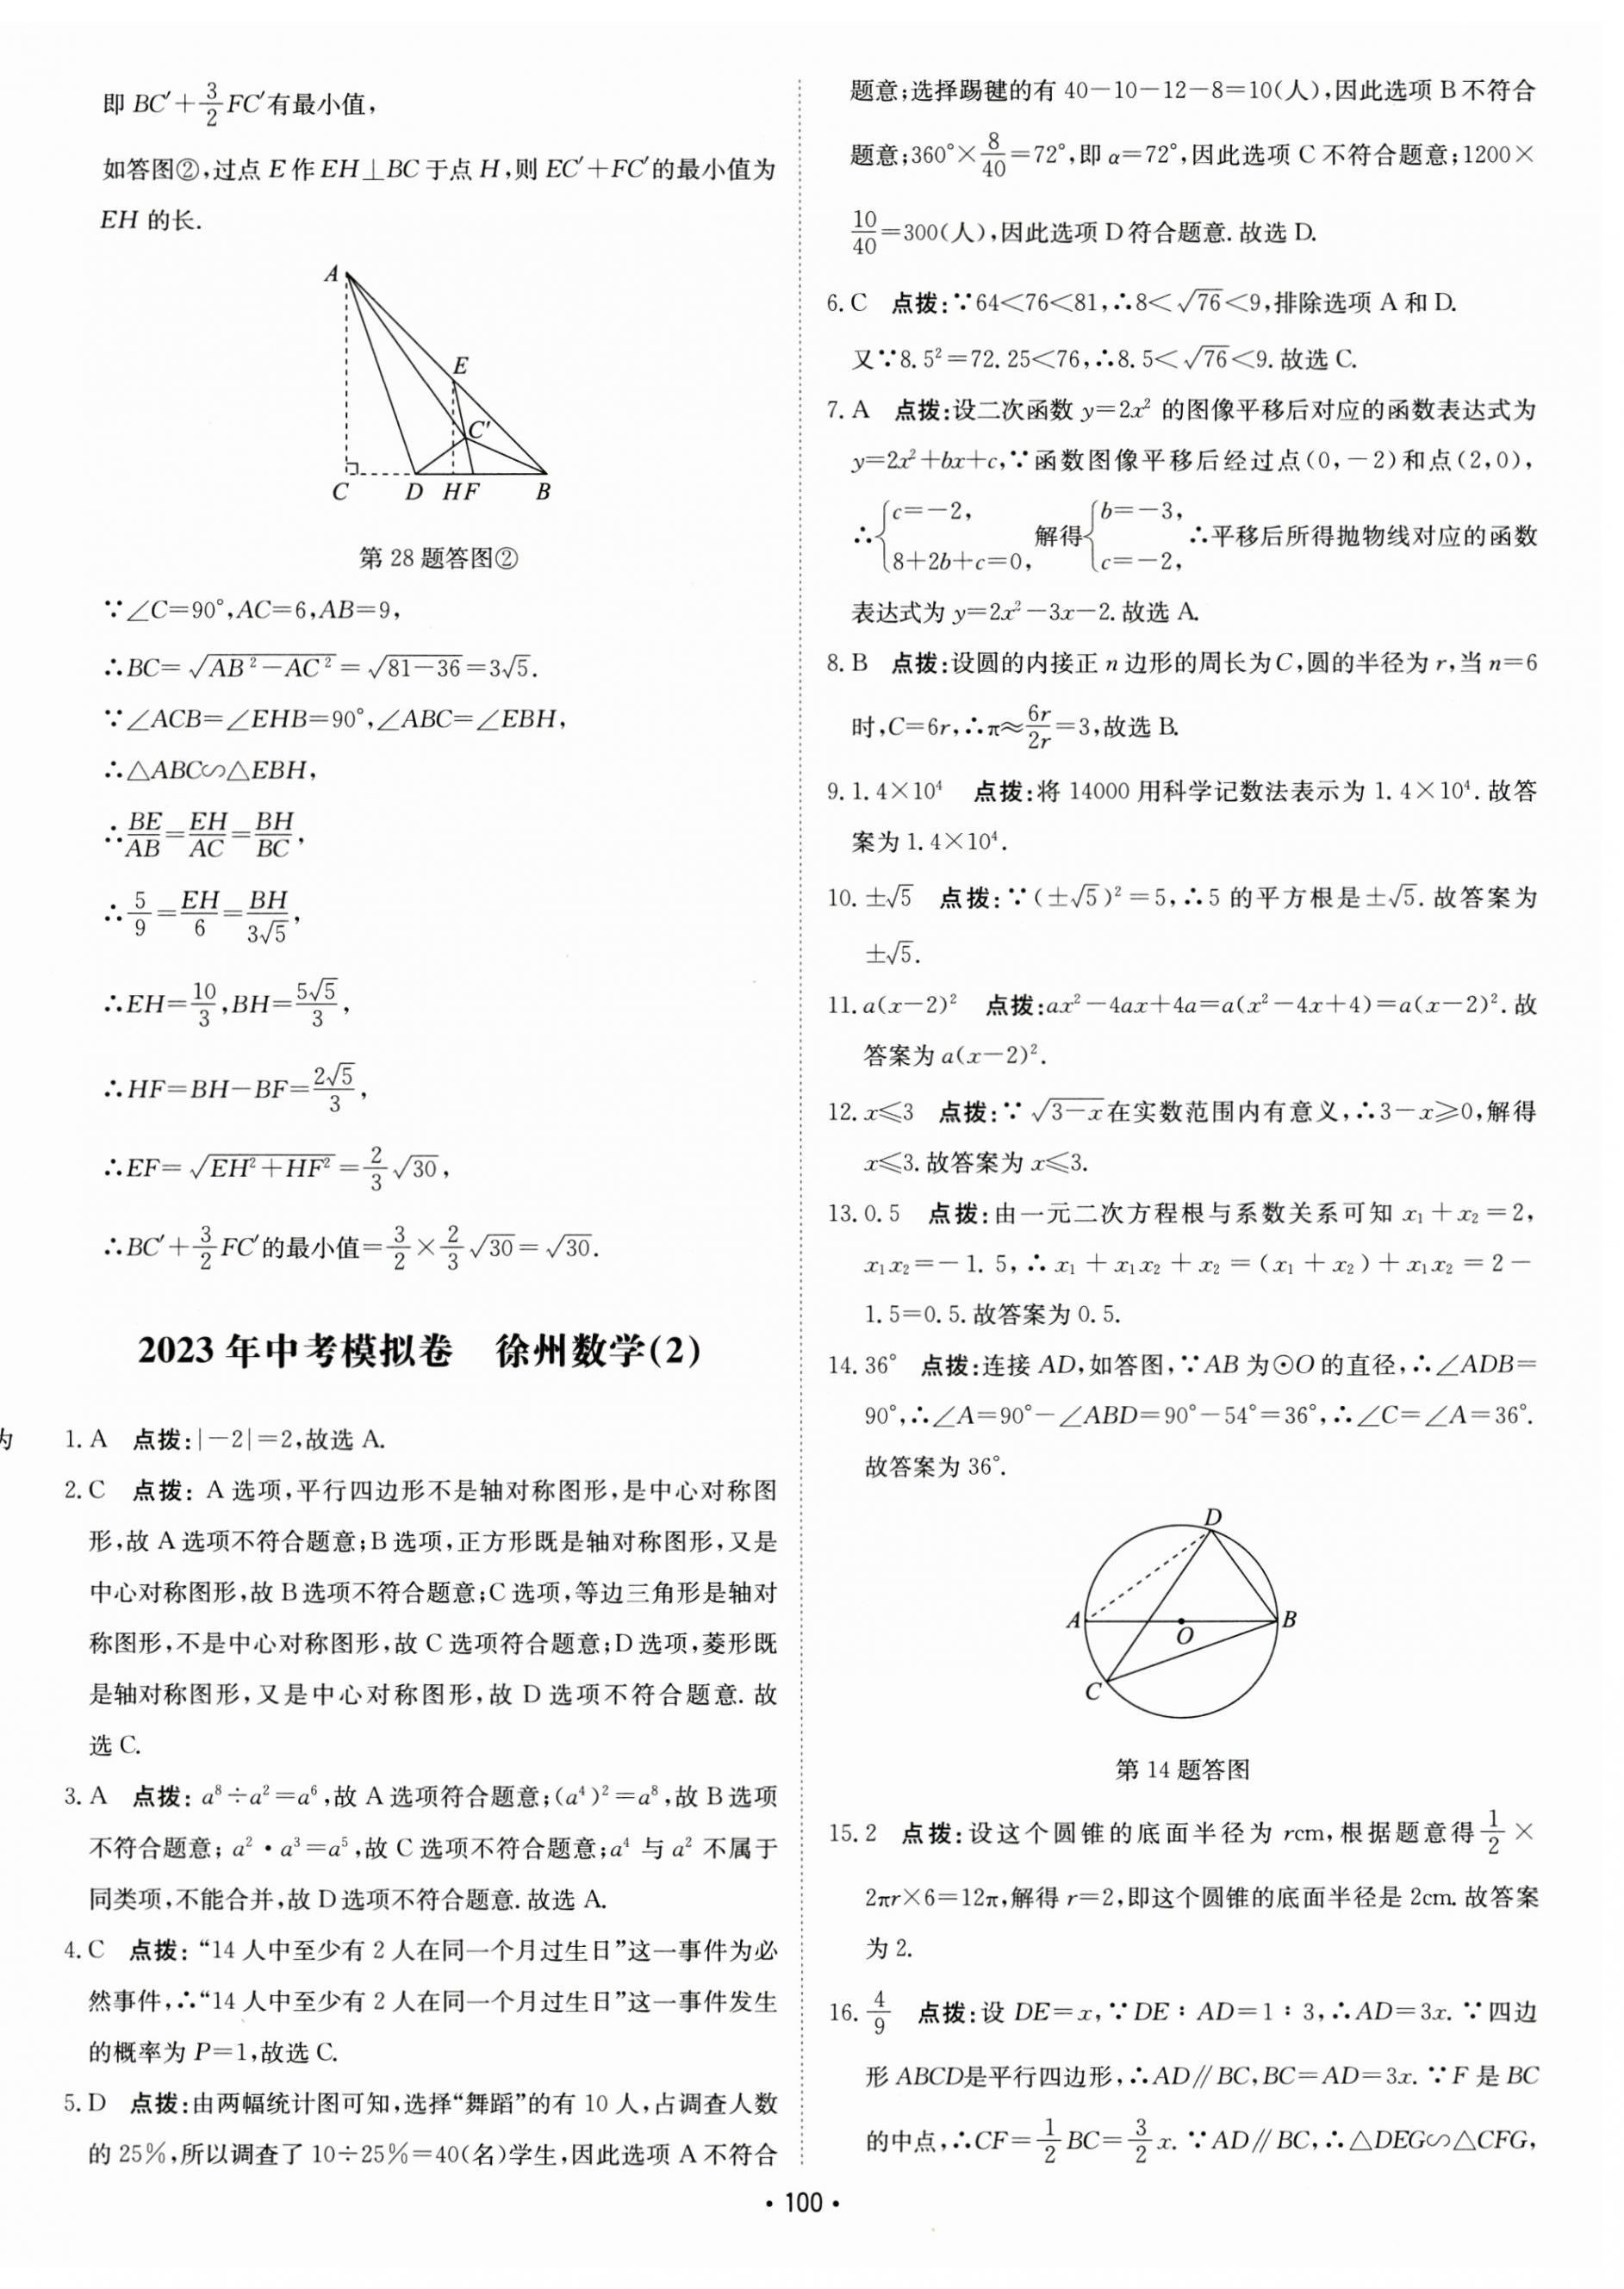 即 BC′+3/2 FC′有最小值,
如答图②,过点 E 作 EH⊥BC 于点 H,则 EC′+FC′的最小值为
EH 的长.
A
E
C′
C D H F B
第 28 题答图②
∵∠C=90°,AC=6,AB=9,
∴BC=√(AB²-AC²)=√(81-36)=3√5.
∵∠ACB=∠EHB=90°,∠ABC=∠EBH,
∴△ABC∽△EBH,
∴BE/AB=EH/AC=BH/BC,
∴5/9=EH/6=BH/(3√5),
∴EH=10/3,BH=5√5/3,
∴HF=BH-BF=2√5/3,
∴EF=√(EH²+HF²)=2/3 √30,
∴BC′+3/2 FC′的最小值=3/2×2/3 √30=√30.
2023 年中考模拟卷 徐州数学(2)
为
1. A 点拨:|-2|=2,故选 A.
2. C 点拨: A 选项,平行四边形不是轴对称图形,是中心对称图
形,故 A 选项不符合题意;B 选项,正方形既是轴对称图形,又是
中心对称图形,故 B 选项不符合题意;C 选项,等边三角形是轴对
称图形,不是中心对称图形,故 C 选项符合题意;D 选项,菱形既
是轴对称图形,又是中心对称图形,故 D 选项不符合题意. 故
选 C.
3. A 点拨: a⁸÷a²=a⁶,故 A 选项符合题意;(a⁴)²=a⁸,故 B 选项
不符合题意; a²·a³=a⁵,故 C 选项不符合题意;a⁴ 与 a² 不属于
同类项,不能合并,故 D 选项不符合题意. 故选 A.
4. C 点拨: “14 人中至少有 2 人在同一个月过生日”这一事件为必
然事件,∴“14 人中至少有 2 人在同一个月过生日”这一事件发生
的概率为 P=1,故选 C.
5. D 点拨:由两幅统计图可知,选择“舞蹈”的有 10 人,占调查人数
的 25%,所以调查了 10÷25%=40(名)学生,因此选项 A 不符合
题意;选择踢毽的有 40-10-12-8=10(人),因此选项 B 不符合
题意;360°×8/40=72°,即 α=72°,因此选项 C 不符合题意;1200×
10/40=300(人),因此选项 D 符合题意. 故选 D.
6. C 点拨:∵64<76<81,∴8<√76<9,排除选项 A 和 D.
又∵8.5²=72.25<76,∴8.5<√76<9. 故选 C.
7. A 点拨:设二次函数 y=2x² 的图像平移后对应的函数表达式为
y=2x²+bx+c,∵函数图像平移后经过点(0,-2)和点(2,0),
∴{c=-2, 8+2b+c=0, 解得{b=-3, c=-2, ∴平移后所得抛物线对应的函数
表达式为 y=2x²-3x-2. 故选 A.
8. B 点拨:设圆的内接正 n 边形的周长为 C,圆的半径为 r,当 n=6
时,C=6r,∴π≈6r/2r=3,故选 B.
9. 1.4×10⁴ 点拨:将 14000 用科学记数法表示为 1.4×10⁴. 故答
案为 1.4×10⁴.
10. ±√5 点拨:∵(±√5)²=5,∴5 的平方根是±√5. 故答案为
±√5.
11. a(x-2)² 点拨:ax²-4ax+4a=a(x²-4x+4)=a(x-2)². 故
答案为 a(x-2)².
12. x⩽3 点拨:∵√(3-x)在实数范围内有意义,∴3-x⩾0,解得
x⩽3. 故答案为 x⩽3.
13. 0.5 点拨:由一元二次方程根与系数关系可知 x₁+x₂=2,
x₁x₂=-1.5,∴x₁+x₁x₂+x₂=(x₁+x₂)+x₁x₂=2-
1.5=0.5. 故答案为 0.5.
14. 36° 点拨:连接 AD,如答图,∵AB 为⊙O 的直径,∴∠ADB=
90°,∴∠A=90°-∠ABD=90°-54°=36°,∴∠C=∠A=36°.
故答案为 36°.
D
A O B
C
第 14 题答图
15. 2 点拨:设这个圆锥的底面半径为 rcm,根据题意得1/2×
2πr×6=12π,解得 r=2,即这个圆锥的底面半径是 2cm. 故答案
为 2.
16. 4/9 点拨:设 DE=x,∵DE∶AD=1∶3,∴AD=3x. ∵四边
形 ABCD是平行四边形,∴AD∥BC,BC=AD=3x. ∵F 是 BC
的中点,∴CF=1/2 BC=3/2 x. ∵AD∥BC,∴△DEG∽△CFG,
• 100 •